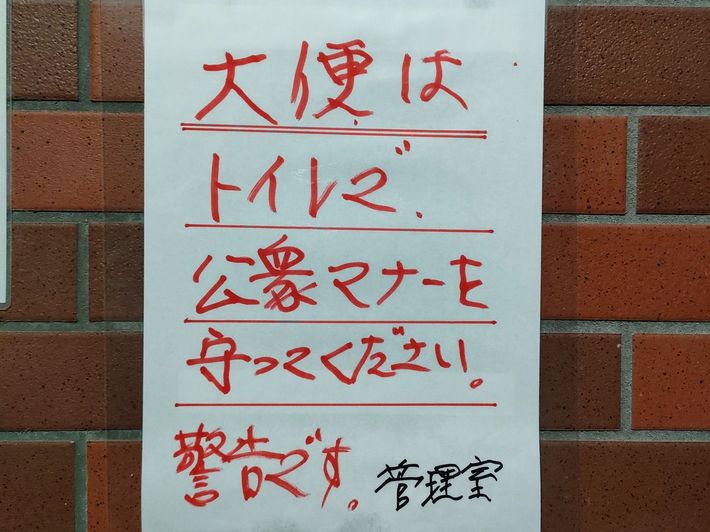 大便は
トイレで、
公衆マナーを
守ってください。
警告です。 管理室